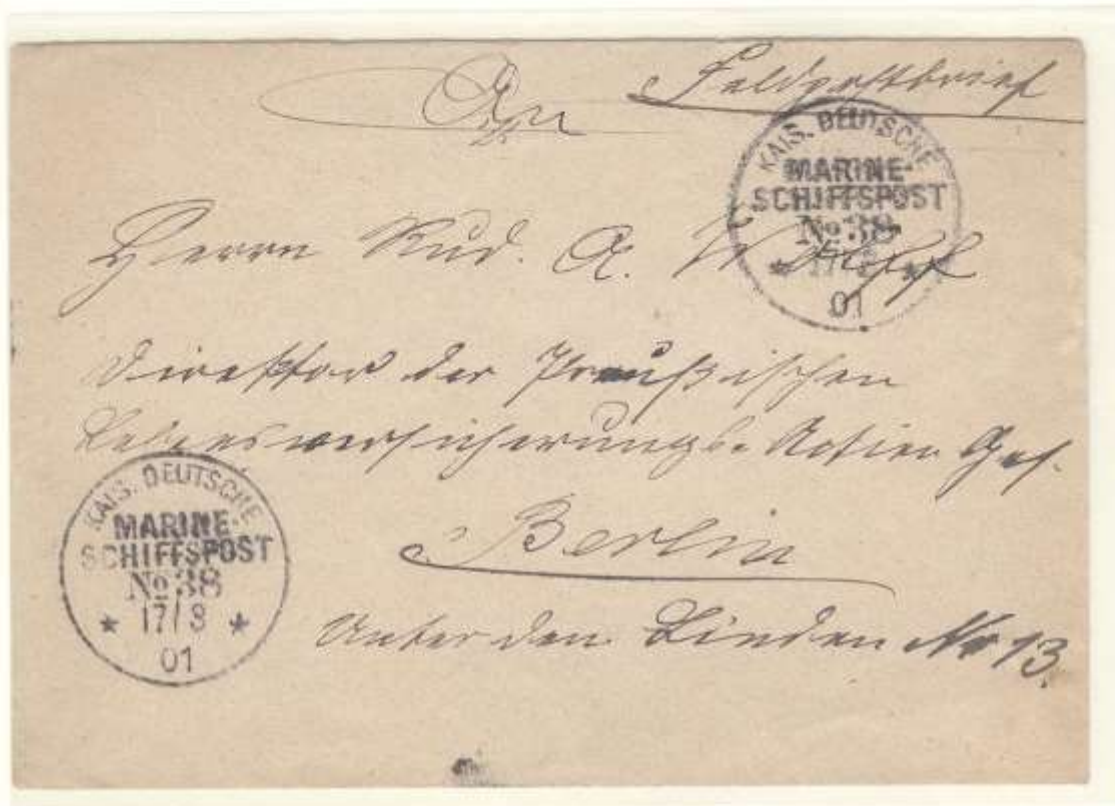 Feldpostbrief
An
KAIS. DEUTSCHE
MARINE-
SCHIFFSPOST
No 38
01
Herrn Rud. A.
Direktor der Preußischen
Lebensversicherungs-Actien Ges.
Berlin
Unter den Linden No 13.
KAIS. DEUTSCHE
MARINE-
SCHIFFSPOST
No 38
17/3
01